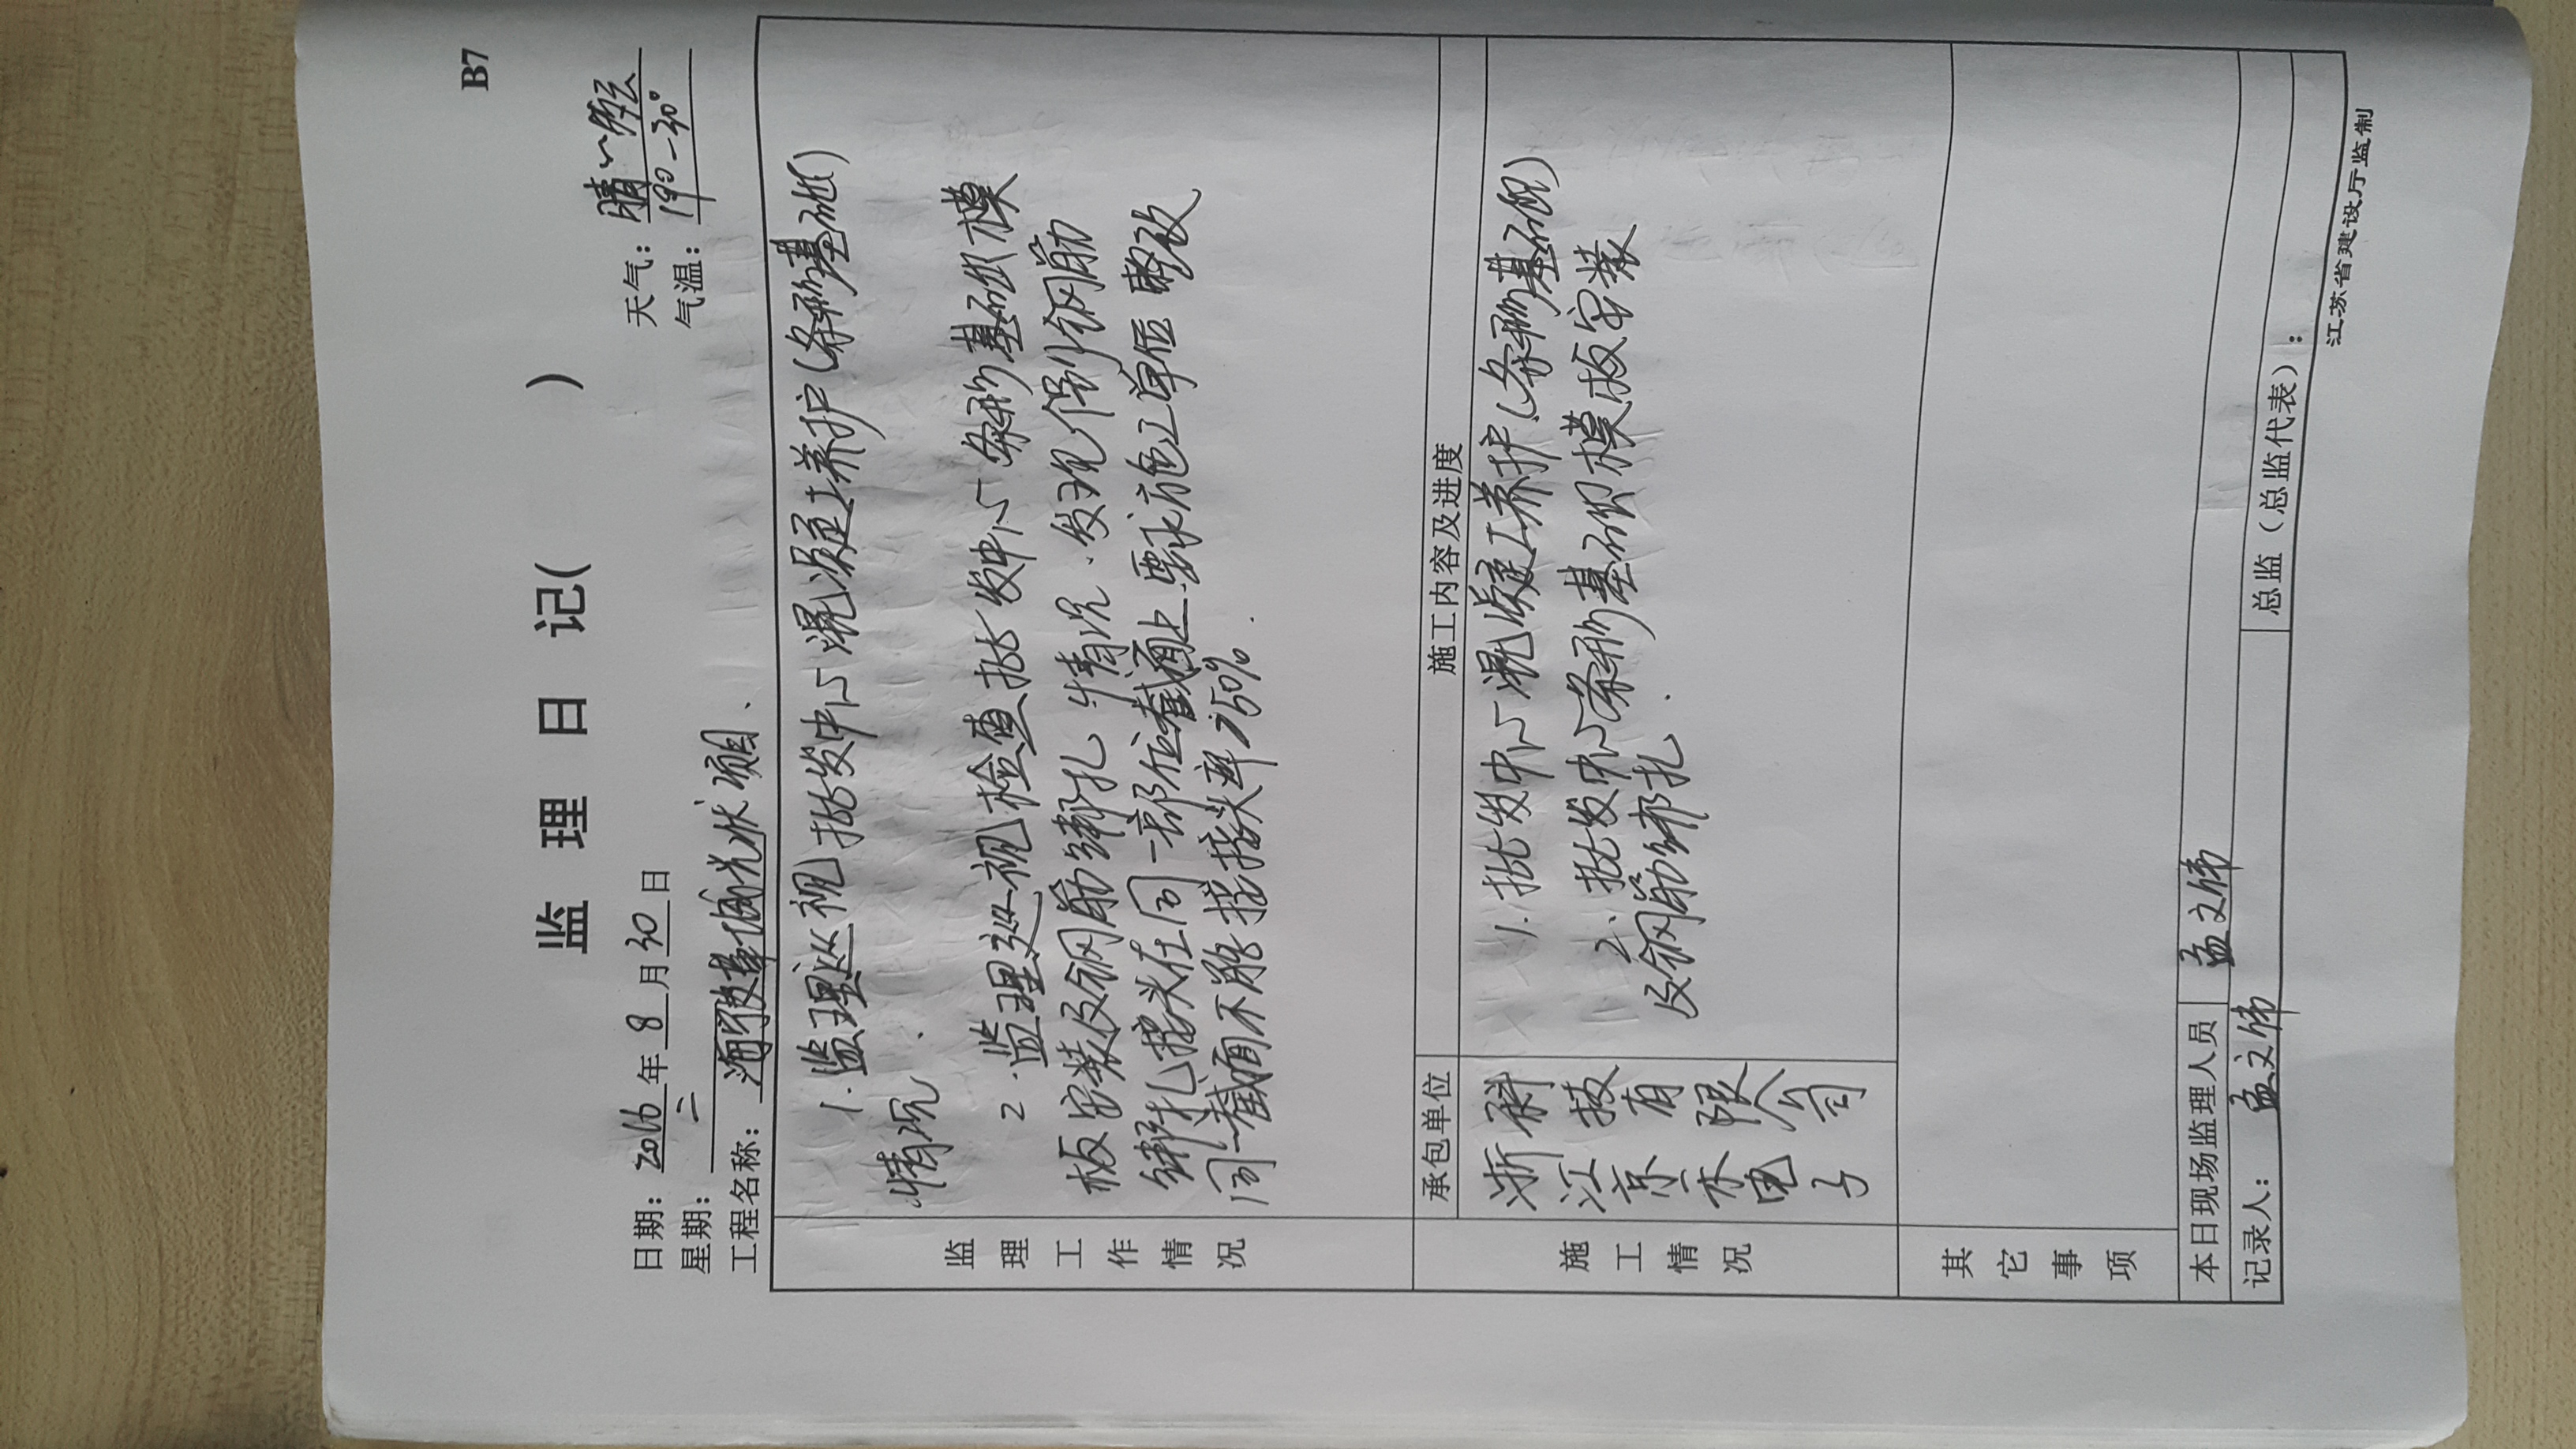 B7
监 理 日 记( )
日期：2016年8月30日 天气：晴～多云
星期：二 气温：19°-30°
工程名称：渔光 项目、
监理工作情况
1. 监理巡视批发中心混凝土养护(条形基础)
情况.
2. 监理巡视检查批发中心条形基础模
板安装及钢筋绑扎情况.发现个别钢筋
绑扎接头在同一部位截面上.要求施工单位整改
同一截面不能搭接头率≥50%.
施工情况
承包单位 施工内容及进度
浙江京木电子
科技有限公司
1. 批发中心混凝土养护(条形基础)
2、批发中心条形基础模板安装
及钢筋绑扎.
其它事项
本日现场监理人员 孟文伟
记录人： 孟文伟 总监（总监代表）：
江苏省建设厅监制